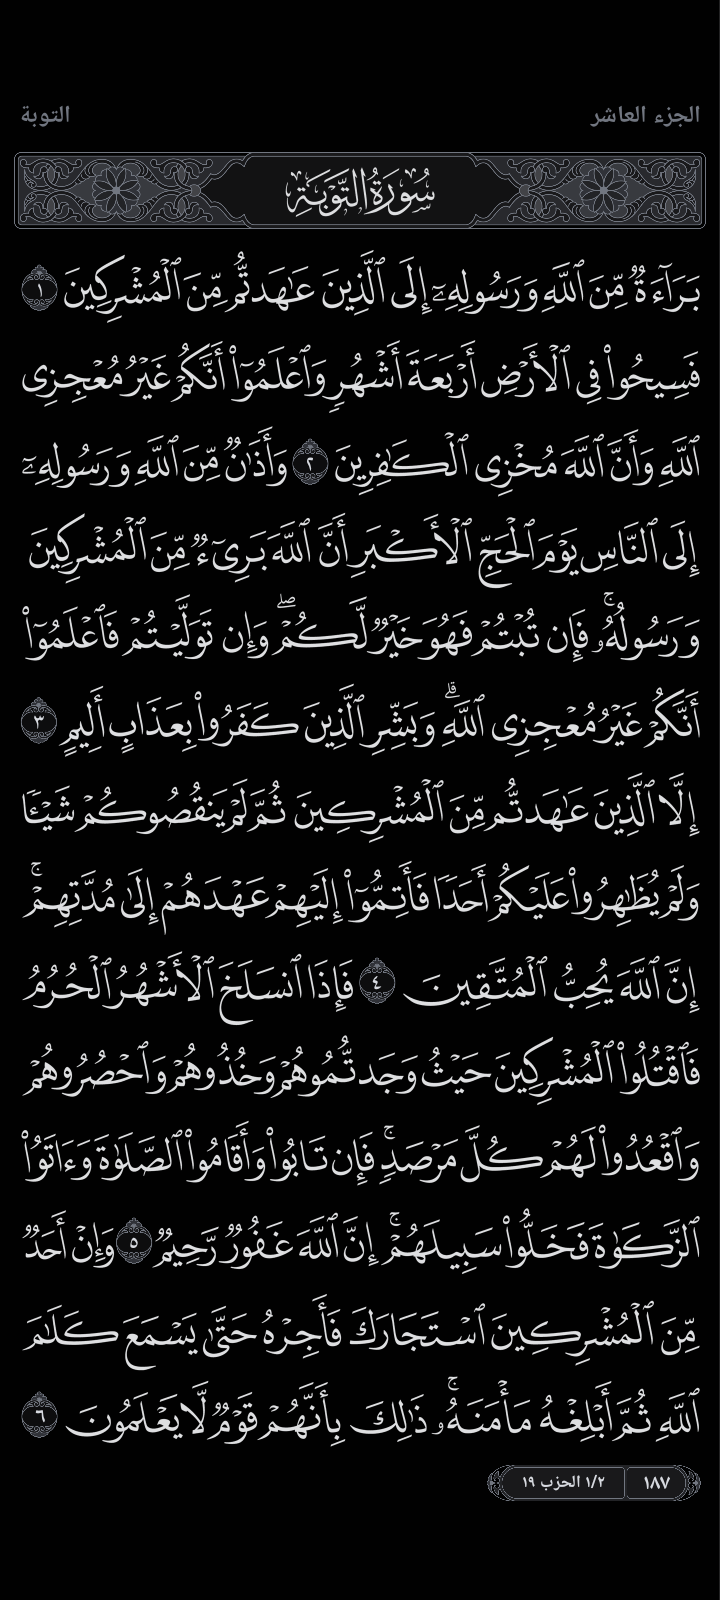 الجزء العاشر
التوبة
سُورَةُ التَّوۡبَةِ
بَرَآءَةٞ مِّنَ ٱللَّهِ وَرَسُولِهِۦٓ إِلَى ٱلَّذِينَ عَٰهَدتُّم مِّنَ ٱلۡمُشۡرِكِينَ ١
فَسِيحُواْ فِي ٱلۡأَرۡضِ أَرۡبَعَةَ أَشۡهُرٖ وَٱعۡلَمُوٓاْ أَنَّكُمۡ غَيۡرُ مُعۡجِزِي
ٱللَّهِ وَأَنَّ ٱللَّهَ مُخۡزِي ٱلۡكَٰفِرِينَ ٢ وَأَذَٰنٞ مِّنَ ٱللَّهِ وَرَسُولِهِۦٓ
إِلَى ٱلنَّاسِ يَوۡمَ ٱلۡحَجِّ ٱلۡأَكۡبَرِ أَنَّ ٱللَّهَ بَرِيٓءٞ مِّنَ ٱلۡمُشۡرِكِينَ
وَرَسُولُهُۥۚ فَإِن تُبۡتُمۡ فَهُوَ خَيۡرٞ لَّكُمۡۖ وَإِن تَوَلَّيۡتُمۡ فَٱعۡلَمُوٓاْ
أَنَّكُمۡ غَيۡرُ مُعۡجِزِي ٱللَّهِۗ وَبَشِّرِ ٱلَّذِينَ كَفَرُواْ بِعَذَابٍ أَلِيمٍ ٣
إِلَّا ٱلَّذِينَ عَٰهَدتُّم مِّنَ ٱلۡمُشۡرِكِينَ ثُمَّ لَمۡ يَنقُصُوكُمۡ شَيۡـٔٗا
وَلَمۡ يُظَٰهِرُواْ عَلَيۡكُمۡ أَحَدٗا فَأَتِمُّوٓاْ إِلَيۡهِمۡ عَهۡدَهُمۡ إِلَىٰ مُدَّتِهِمۡۚ
إِنَّ ٱللَّهَ يُحِبُّ ٱلۡمُتَّقِينَ ٤ فَإِذَا ٱنسَلَخَ ٱلۡأَشۡهُرُ ٱلۡحُرُمُ
فَٱقۡتُلُواْ ٱلۡمُشۡرِكِينَ حَيۡثُ وَجَدتُّمُوهُمۡ وَخُذُوهُمۡ وَٱحۡصُرُوهُمۡ
وَٱقۡعُدُواْ لَهُمۡ كُلَّ مَرۡصَدٖۚ فَإِن تَابُواْ وَأَقَامُواْ ٱلصَّلَوٰةَ وَءَاتَوُاْ
ٱلزَّكَوٰةَ فَخَلُّواْ سَبِيلَهُمۡۚ إِنَّ ٱللَّهَ غَفُورٞ رَّحِيمٞ ٥ وَإِنۡ أَحَدٞ
مِّنَ ٱلۡمُشۡرِكِينَ ٱسۡتَجَارَكَ فَأَجِرۡهُ حَتَّىٰ يَسۡمَعَ كَلَٰمَ
ٱللَّهِ ثُمَّ أَبۡلِغۡهُ مَأۡمَنَهُۥۚ ذَٰلِكَ بِأَنَّهُمۡ قَوۡمٞ لَّا يَعۡلَمُونَ ٦
١٨٧
١/٢ الحزب ١٩